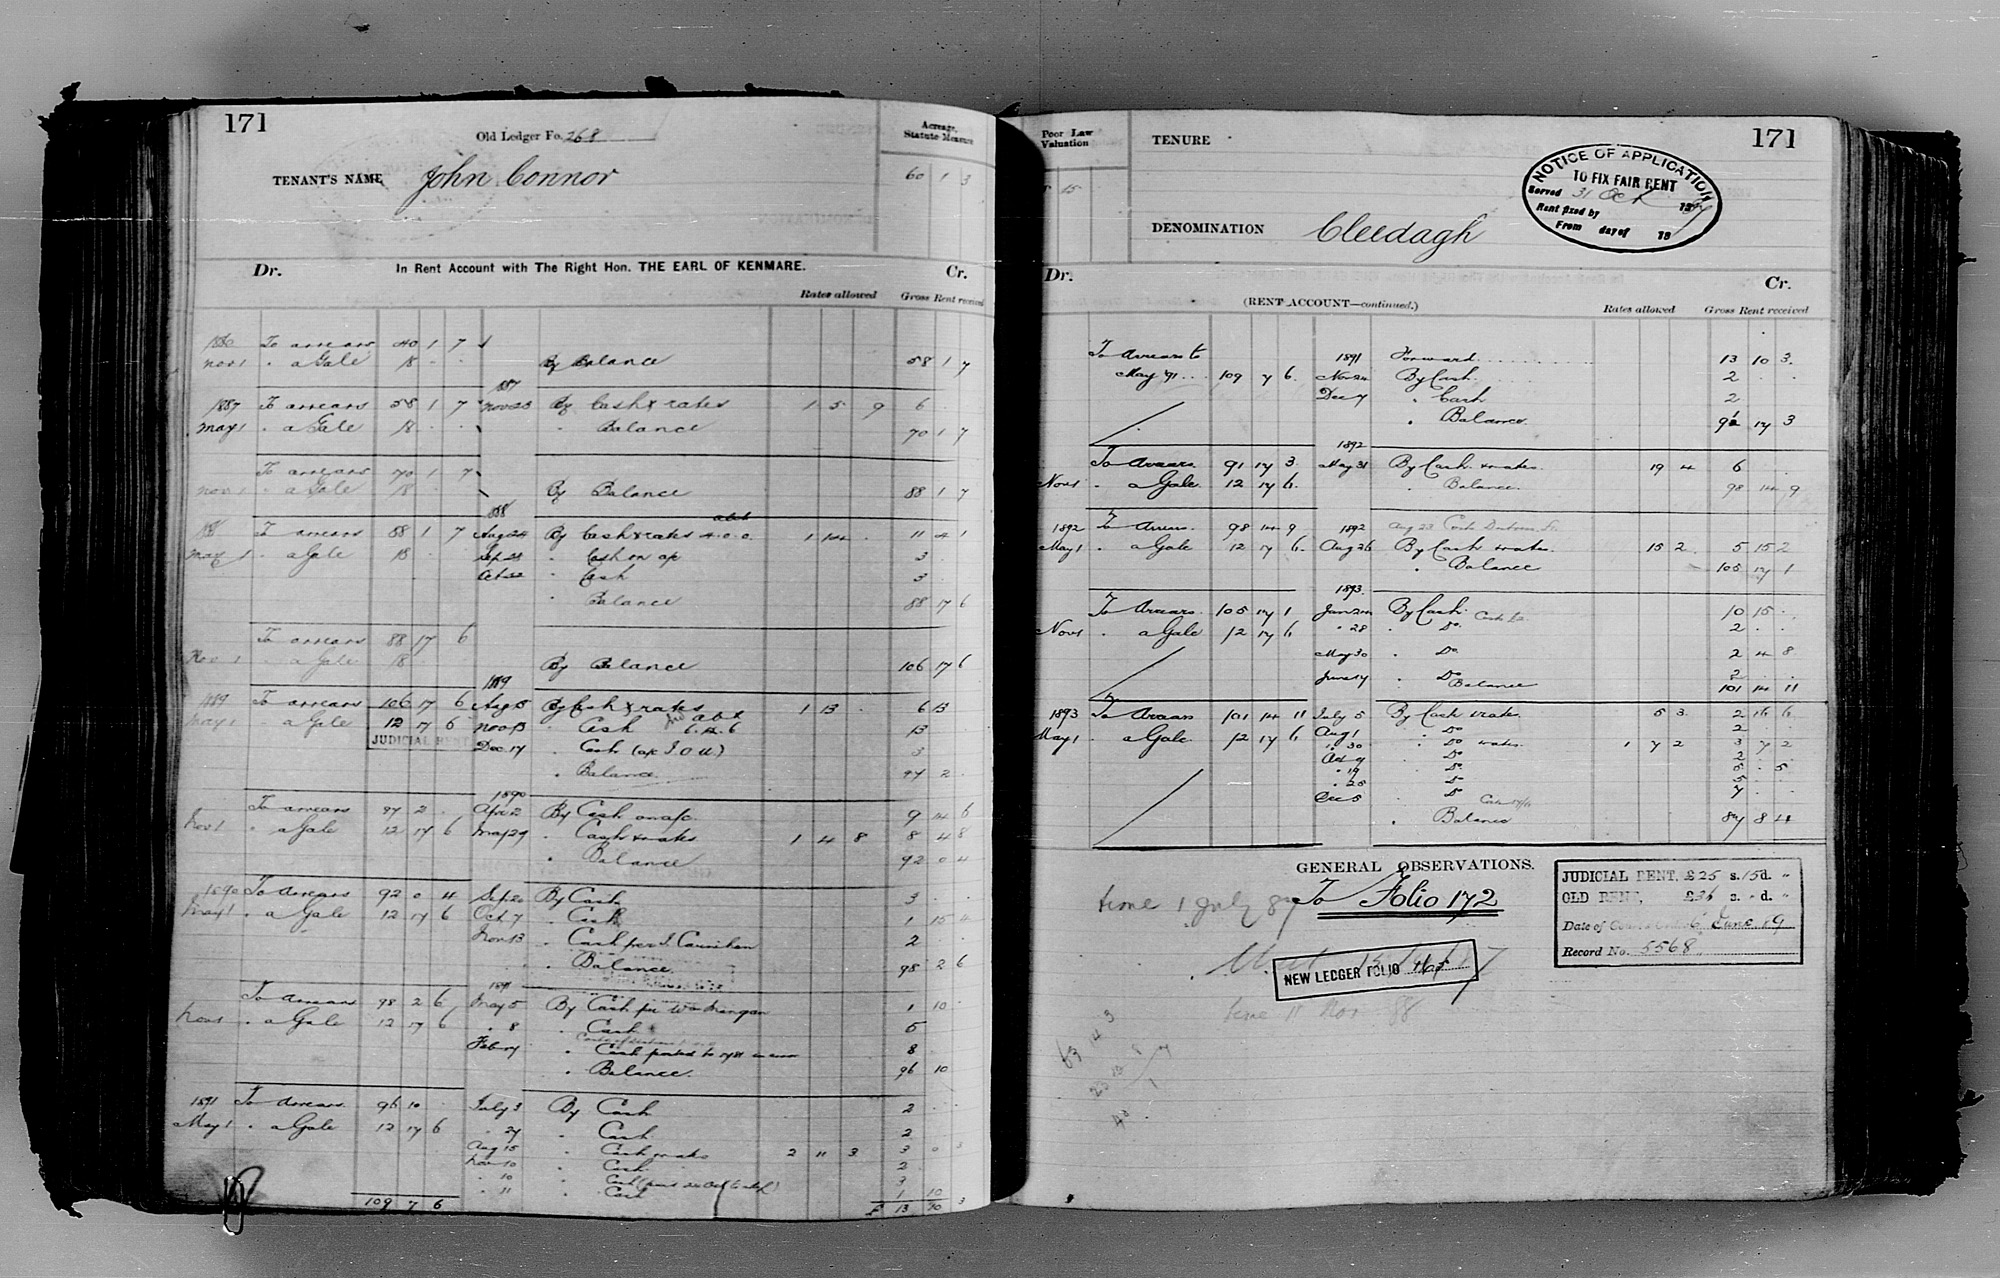 171
Old Ledger Fo. 268
Acreage, Statute Measure
TENANT'S NAME John Connor
60 1 3
Dr. In Rent Account with The Right Hon. THE EARL OF KENMARE. Cr.
Rates allowed Gross Rent received
To arrears 40 1 7
Nov 1 " a Gale 18 " " By Balance 58 1 7
1887
1887 To arrears 58 1 7 Nov 23 By Cash & rates 1 5 9 6
May 1 " a Gale 18 " " " Balance 70 1 7
To arrears 70 1 7
Nov 1 " a Gale 18 By Balance 88 1 7
888
To arrears 88 1 7 Aug 24 By Cash & rates 1 14 " 11 4 1
May 1 " a Gale 18 Sep 28 " Cash on a/c 3
Oct 22 " Cash 3
" Balance 88 17 6
To arrears 88 17 6
Nov 1 " a Gale 18 By Balance 106 17 6
1889
1889 To arrears 106 17 6 Aug 15 By Cash & rates 1 13 " 6 13
May 1 " a Gale 12 17 6 Nov 13 " Cash 13
JUDICIAL RENT
Dec 17 " Cash (a/c I.O.U.) 3
" Balance 97 2
1890
To arrears 97 2 " Apr 2 By Cash on a/c 9 14 6
Nov 1 " a Gale 12 17 6 May 29 " Cash & rates 1 4 8 8 4 8
" Balance 92 0 4
1890 To arrears 92 0 4 Sep 20 By Cash 3
May 1 " a Gale 12 17 6 Oct 7 " Cash 1 15 4
Nov 13 " Cash per J. Counihan 2
" Balance 98 2 6
1891
To arrears 98 2 6 May 5 By Cash per Wm Mangan 1 10
Nov 1 " a Gale 12 17 6 " 8 " Cash 5
Feb 17 " Cash posted to 1781 in error 8
" Balance 96 10
1891 To arrears 96 10 " July 3 By Cash 2
May 1 " a Gale 12 17 6 " 27 " Cash 2
Aug 15 " Cash & rates 2 11 3 3 0 3
Nov 10 " Cash 2
" 10 " Cash 3
" 11 " Cash 1 10
109 7 6 £ 13 10 3
Poor Law Valuation
TENURE
171
15
NOTICE OF APPLICATION
TO FIX FAIR RENT
Served 31 Oct 1887
Rent fixed by
From day of 18
DENOMINATION Cleedagh
Dr. Cr.
(RENT ACCOUNT—continued.)
Rates allowed Gross Rent received
To Arrears to 1891 Forward 13 10 3
May 91 109 7 6 Nov 24 By Cash 2
Dec 7 " Cash 2
" Balance 91 17 3
1892
To Arrears 91 17 3 May 31 By Cash & rates 19 4 6
Nov 1 " a Gale 12 17 6 " Balance 98 14 9
1892 To Arrears 98 14 9 1892
May 1 " a Gale 12 17 6 Aug 26 By Cash & rates 15 2 5 15 2
" Balance 105 17 1
1893
To Arrears 105 17 1 Jan 24 By Cash 10 15
Nov 1 " a Gale 12 17 6 " 28 " Do 2
May 30 " Do 2 4 8
June 17 " Do 2
Balance 101 14 11
1893 To Arrears 101 14 11 July 5 By Cash & rates 5 3 2 16 6
May 1 " a Gale 12 17 6 Aug 1 " Do 2
" 30 " Do & rates 1 7 2 3 7 2
Oct 9 " Do 2
" 19 " Do 5 " 5
" 25 " Do 5
Dec 5 " Do 7
" Balance 87 8 4
GENERAL OBSERVATIONS.
time 1 July 87
To Folio 172
NEW LEDGER FOLIO 165
time 11 Nov 88
JUDICIAL RENT, £25 s. 15 d. "
OLD RENT, £36 s. " d. "
Date of 6 June 89
Record No. 5568
63 14 3